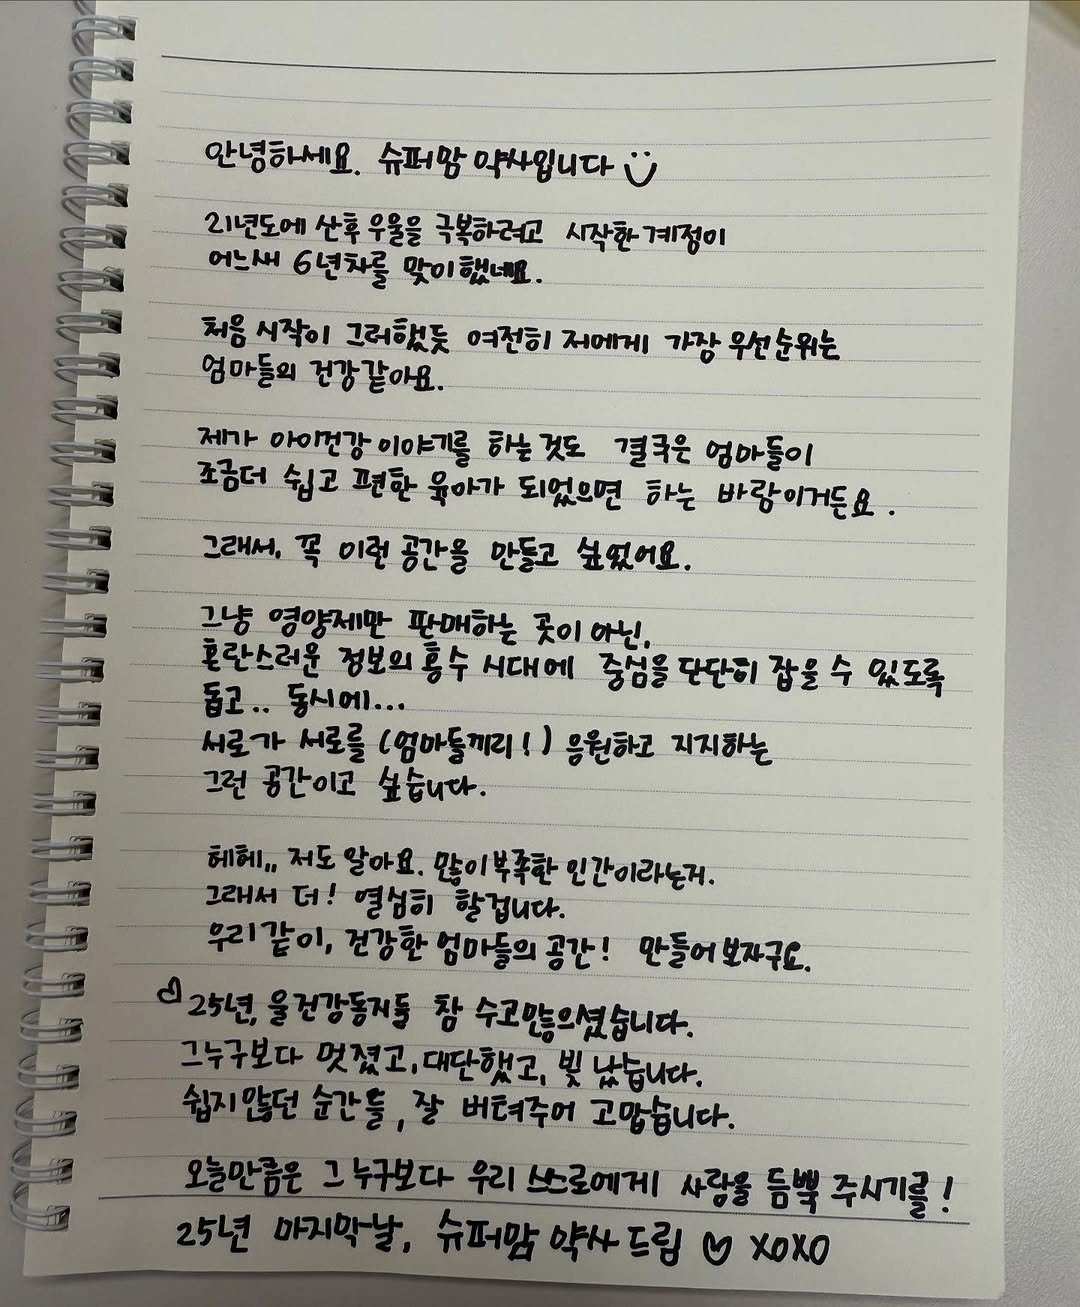 안녕하세요. 슈퍼맘 약사입니다
21년도에 산후 우울을 극복하려고 시작한 계정이
어느새 6년차를 맞이했네요.
처음 시작이 그러했듯 여전히 저에게 가장 우선순위는
엄마들의 건강같아요.
제가 아이건강 이야기를 하는것도 결국은 엄마들이
조금더 쉽고 편한 육아가 되었으면 하는 바람이거든요.
그래서, 꼭 이런 공간을 만들고 싶었어요.
그냥 영양제만 판매하는 곳이 아닌,
혼란스러운 정보의 홍수 시대에 중심을 단단히 잡을 수 있도록
돕고.. 동시에...
서로가 서로를 (엄마들끼리!) 응원하고 지지하는
그런 공간이고 싶습니다.
헤헤,, 저도 알아요. 많이부족한 인간이라는거.
그래서 더! 열심히 할겁니다.
우리같이, 건강한 엄마들의 공간! 만들어보자구요.
♡25년, 울건강동지들 참 수고많으셨습니다.
그누구보다 멋졌고, 대단했고, 빛 났습니다.
쉽지않던 순간들, 잘 버텨주어 고맙습니다.
오늘만큼은 그 누구보다 우리 스스로에게 사랑을 듬뿍 주시기를!
25년 마지막날, 슈퍼맘 약사 드림 ♡ XOXO